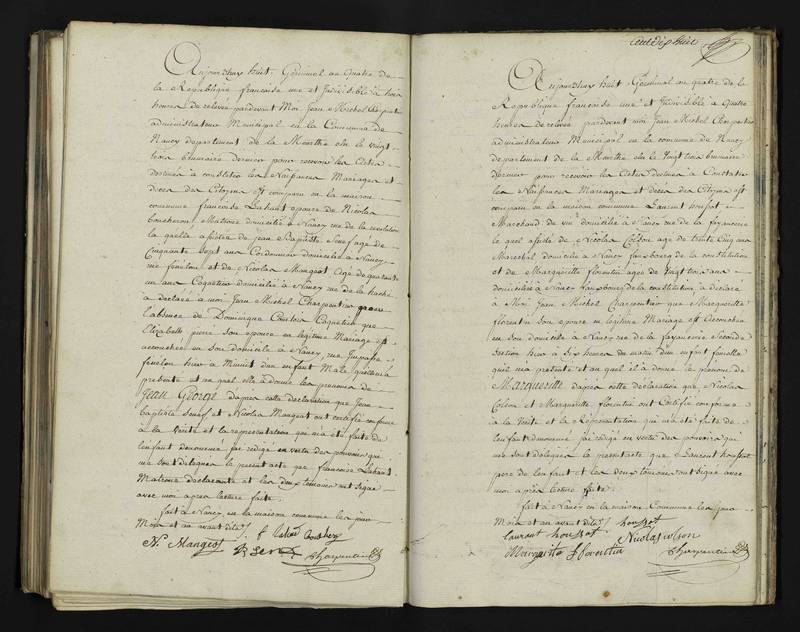 Aujourd'huy huit Germinal an quatre de
la Republique francaise une et Indivisible à trois
heures de relevée pardevant Moi Jean Michel Charpentier
administrateur Municipal en la Commune de
Nancy departement de la Meurthe elu le vingt
trois brumaire dernier pour recevoir les actes
destinés à constater les Naissances Mariages et
décès des Citoyens est comparu en la maison
commune francoise epouse de Nicolas
Matrone domiciliée à Nancy rue de la revolution
laquelle assistée de jean Baptiste agé de
Cinquante sept ans Cordonnier domicilié à Nancy
rue fénélon et de Nicolas Mangeot agé de quarante
un ans Coquetier domicilié à Nancy rue de la hache
a déclaré à moi Jean Michel Charpentier que
l'absence de Dominique Coquetier que
Elizabeth pierré son epouse en légitime Mariage est
accouchée en son domicile à Nancy rue
fénélon hier à Minuit d'un enfant Male quelle m'a
presenté et au quel elle à donné les prenoms de
Jean George d'apres cette déclaration que Jean
baptiste et Nicolas Mangeot ont certifié conforme
à la Verité et la représentation qui m'a été faite de
l'enfant dénommé j'ai rédigé en vertu des pouvoirs qui
me sont délégués le présent acte que francoise
Matrone déclarante et les deux témoins ont signé
avec moi après lecture faite.
fait à Nancy en la maison commune les jour
Mois et an avant dits
N. Mangeot
Charpentier
cent dix huit
Aujourd'huy huit Germinal an quatre de la
Republique francaise une et Indivisible à Quatre
heures de relevée pardevant moi Jean Michel Charpentier
administrateur Municipal en la commune de Nancy
departement de la Meurthe elu le Vingt trois brumaire
dernier pour recevoir les Actes destinés à Constater
les Naissances Mariages et décès des Citoyens est
comparu en la maison commune Laurent houssot
Marchand de vin domicilié à Nancy rue de la fayancerie
le quel assisté de Nicolas Colson agé de trente Cinq ans
Marechal domicilié à Nancy faubourg de la constitution
et de Margueritte florentin agée de Vingt trois ans
domiciliée à Nancy faubourg de la constitution, à déclaré
à Moi Jean Michel Charpentier que Margueritte
florentin son epouse en légitime Mariage est accouchée
en son domicile à Nancy rue de la fayancerie Seconde
Section hier à Six heures du matin d'un enfant femelle
qu'il m'a presenté et au quel il à donné le prenom de
Margueritte d'apres cette déclaration que Nicolas
Colson et Margueritte florentin ont Certifié conforme
à la Verité et la Représentation qui m'a été faite de
l'enfant dénommé j'ai rédigé en vertu des pouvoirs qui
me sont délégués le présent acte que Laurent houssot
pere de l'enfant et les deux témoins ont signé avec
moi après lecture faite
fait à Nancy en la maison Commune les jour
Mois et an avant dits houssot
laurent houssot Nicolas colson
Margueritte florentin Charpentier